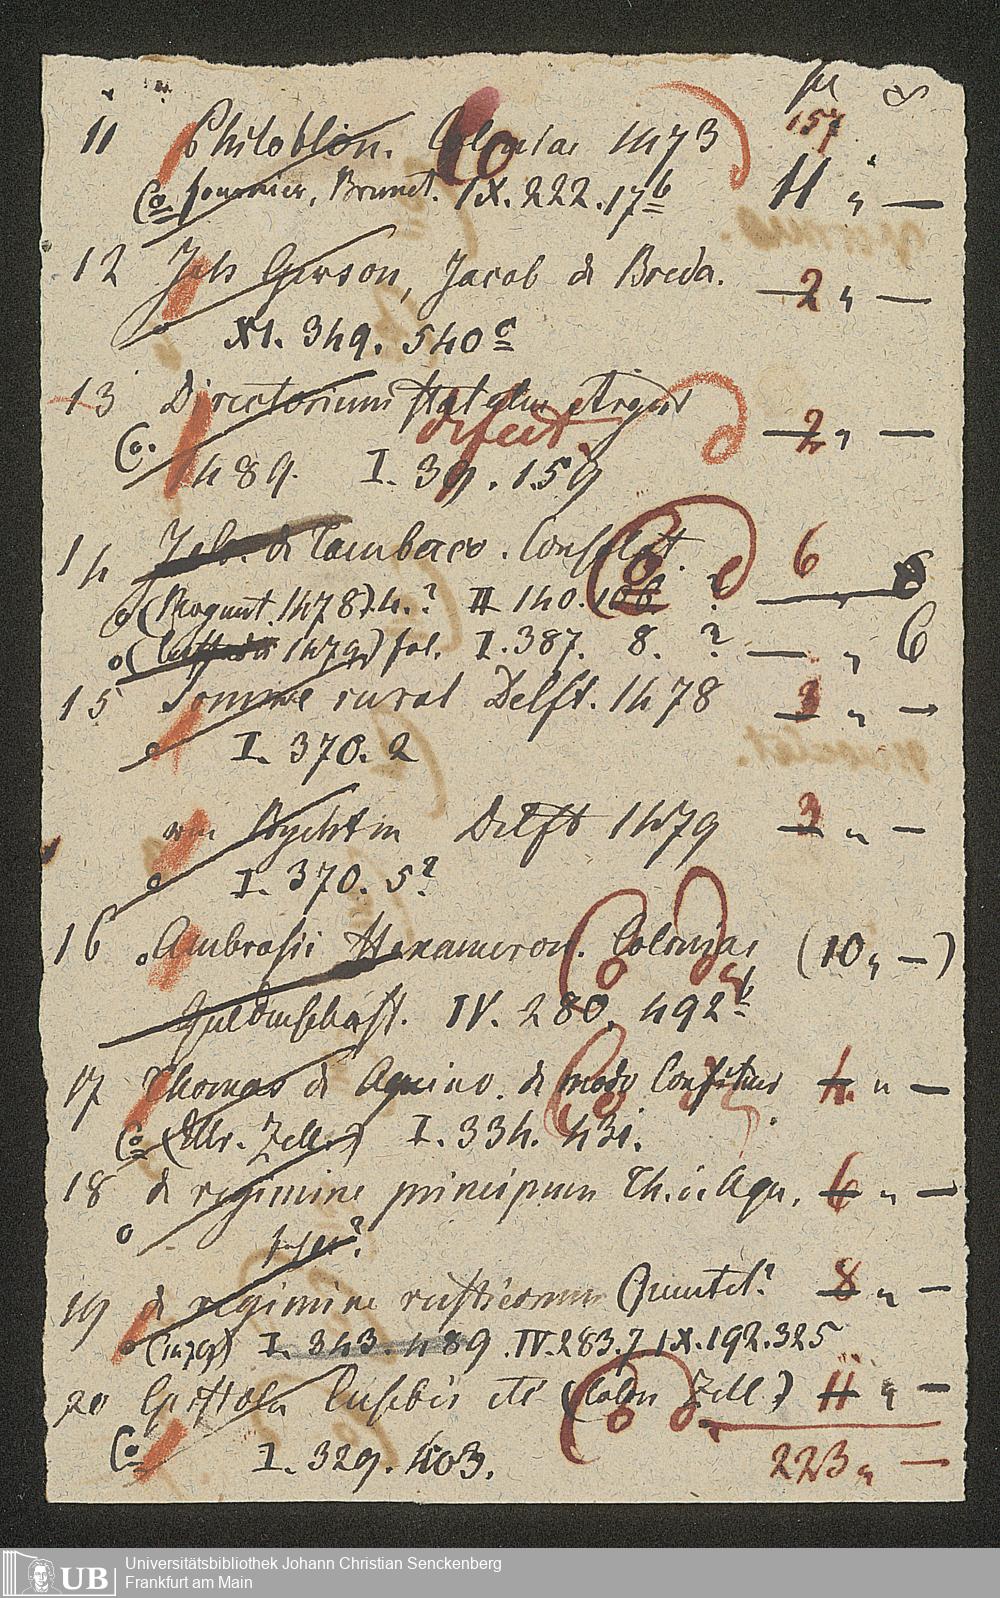 157
11 Philoblion. Coloniae 1473 11 „ —
Co Fournier, Brunet. IX. 222. 17b
12 Joh Gerson, Jacob de Breda. 2 „ —
XI. 349. 540c
13 Directorium Statuum Argent 2 „ —
defect.
Co. 1489. I. 39. 159
14 Joh. de Tambaco. Consolat. 6
(Mogunt. 1478). 4.? II 140. 106 ?
1479) fol. I. 387. 8. ? — „ 6
15 Somme rural Delft. 1478 3 „ —
I. 370. 2
Delft 1479 3 „ —
I. 370. 5?
16 Ambrosii Hexameron. Coloniae (10 „ —)
Guldenschaff. IV. 280. 492b
17 Thomas de Aquino. de modo Confitendi 4. „ —
Co (Ulr. Zell.) I. 334. 431.
18 de regimine principum Th. de Aqu. 6 „ —
19 de regimine rusticorum Quentel? 8 „ —
I. 343. 489. IV. 283. 7. IX. 192. 325
20 Epistola Eusebii etc (Colon Zell ?) 11 „ —
Co I. 329. 403.
223 „ —
UB Universitätsbibliothek Johann Christian Senckenberg
Frankfurt am Main